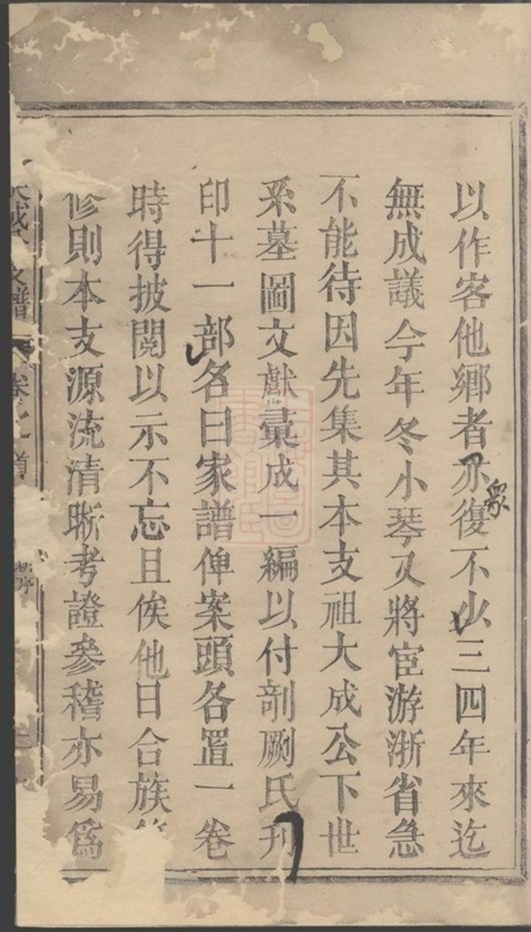 以作客他鄉者亦復不少三四年來迄
衆
無成議今年冬小琴又將宦游浙省急
不能待因先集其本支祖大成公下世
系墓圖文獻彙成一編以付剞劂氏刋
印十一部名曰家譜俾案頭各置一卷
時得披閱以示不忘且俟他日合族
修則本支源流清晰考證參稽亦易爲
成 支譜 卷 首